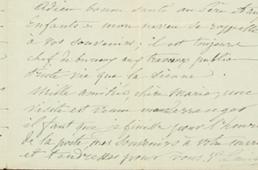 Adieu bonne santé au Père
enfants et mon neveu se rappelle
à vos souvenirs, il est toujours
chef de bureau aux travaux publics
triste vie que la sienne.
Mille amitiés chère Marie, une
visite est venue
il faut que je finisse pour l'heure
de la poste, mes souvenirs à votre mari
et tendresses pour vous